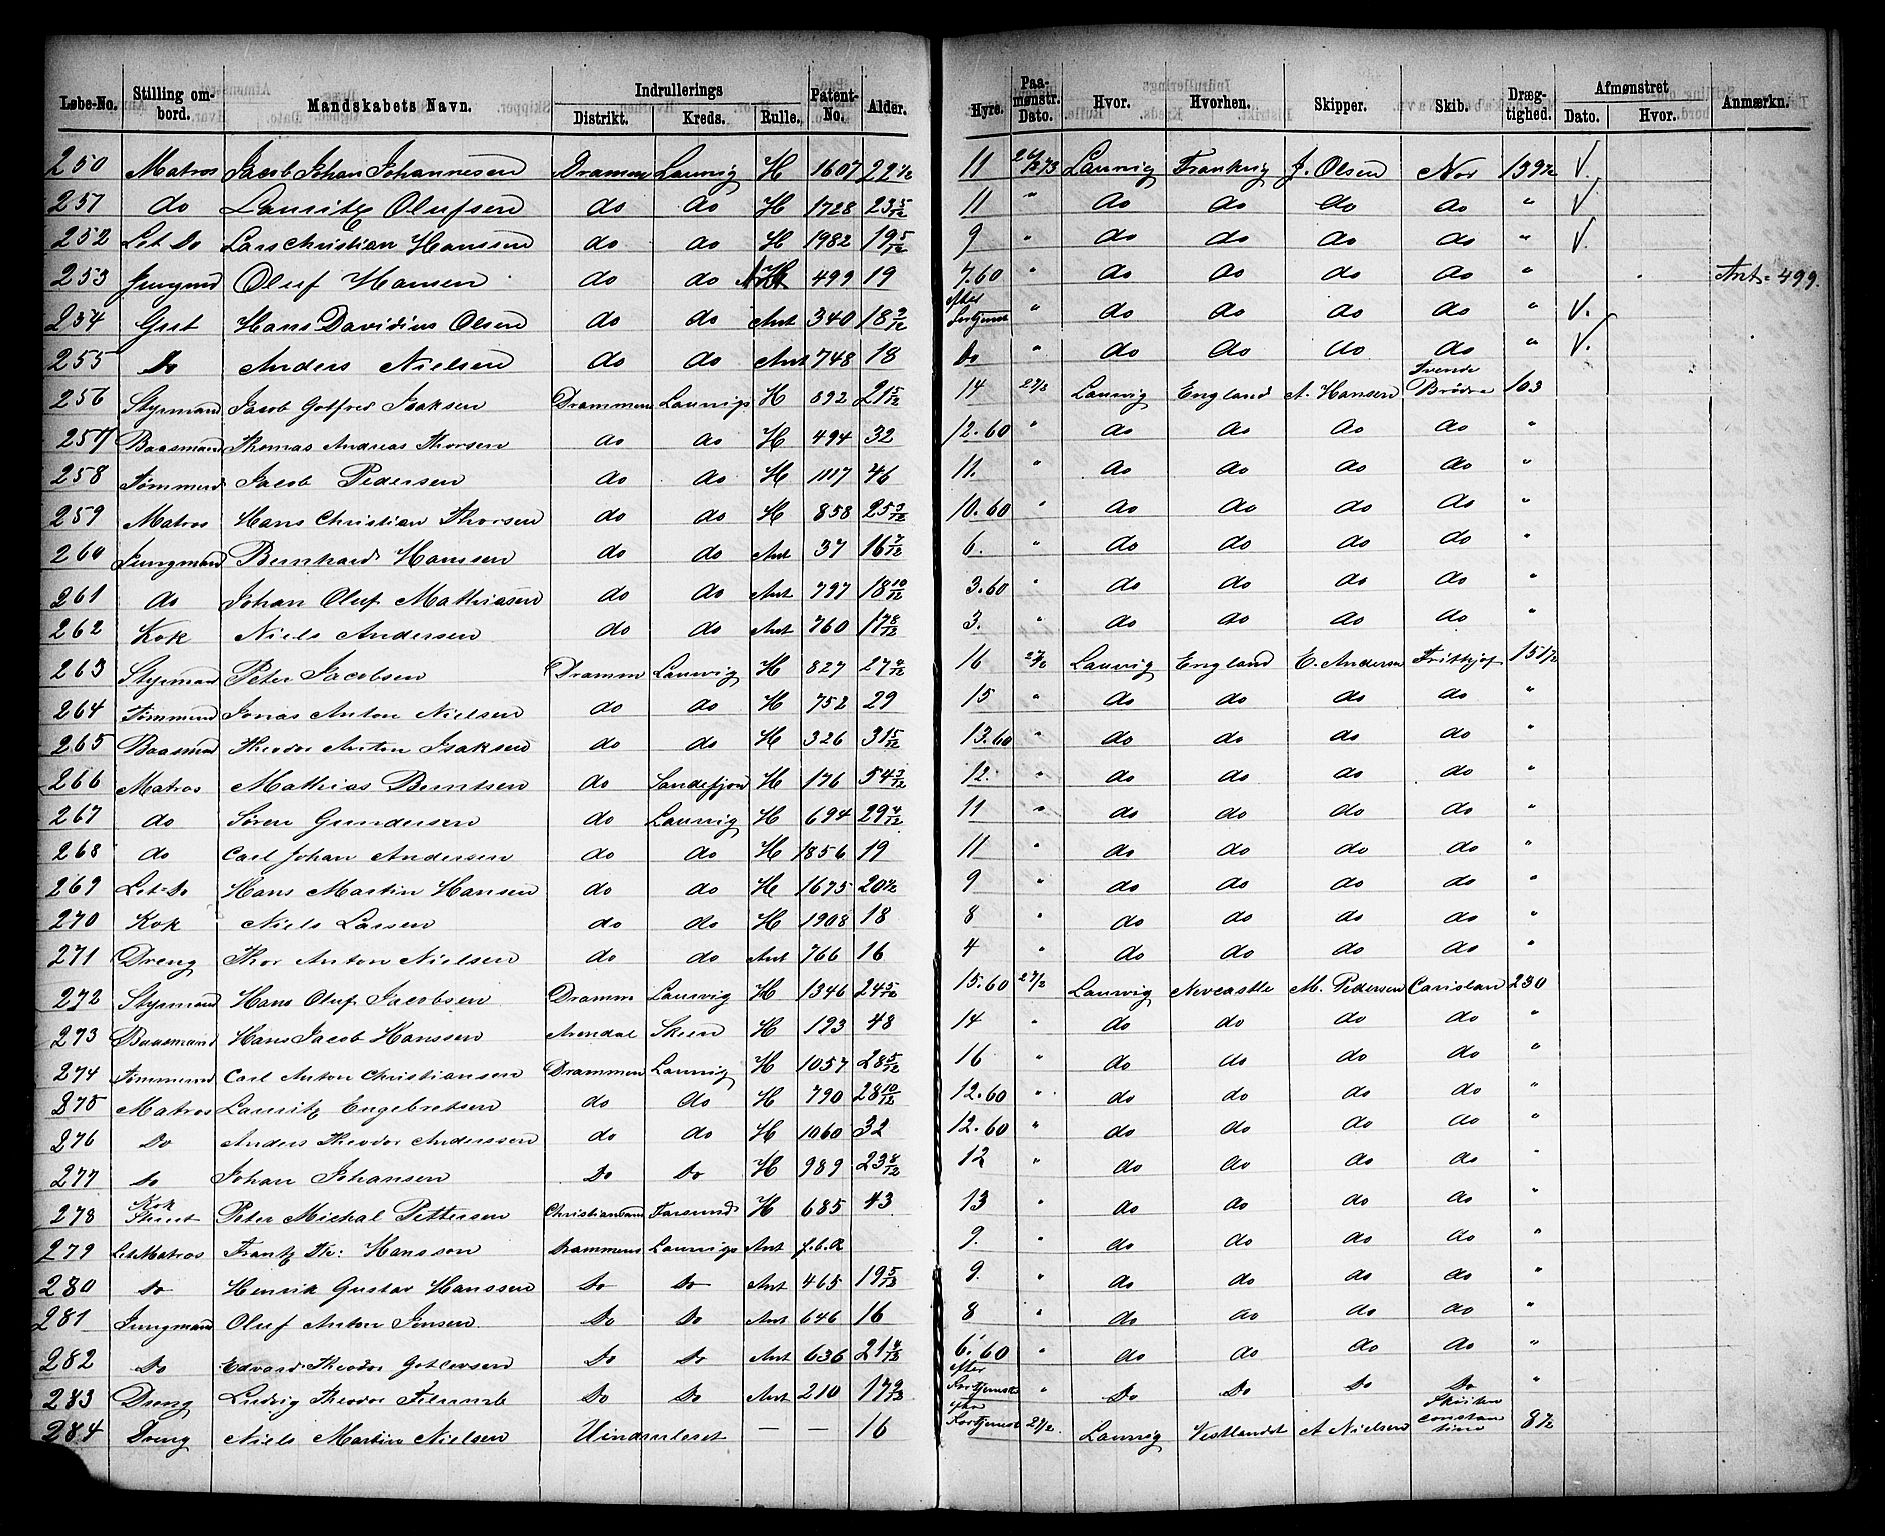 Løbe-No. | Stilling ombord. | Mandskabets Navn. | Indrullerings Distrikt. | Kreds. | Rulle. | Patent-No. | Alder. | Hyre. | Paamønstr. Dato. | Hvor. | Hvorhen. | Skipper. | Skib. | Drægtighed. | Afmønstret Dato. | Hvor. | Anmærkn.
250 Matros Jacob Johan Johannesen Dramm Laurvig H 1607 22 11 26/2 73 Laurvig Frankrig J. Olsen Nor 139½ V.
251 do Lauritz Olufsen do do H 1728 23 5/12 11 " do do do do " V
252 Let Do Lars Christian Hanssen do do H 1982 19 5/12 9 " do do do do " V.
253 Jungmd Oluf Hansen do do 499 19 7.60 " do do do do " Ant. 499.
254 Gut Hans Davidius Olsen do do Ant 340 18 efter Fortjenst " do do do do " V.
255 Do Anders Nielsen do do Ant 748 18 Do " do do do do " V.
256 Styrmand Jacob Gotfred Isaksen Drammen Laurvigs H 892 21 5/12 14 27/2 Laurvig England A. Hansen Tvende Brødre 103
257 Baasmand Thomas Andreas Thorsen do do H 494 32 12.60 " do do do do "
258 Tømmrmd Jacob Pedersen do do H 1117 46 11. " do do do do "
259 Matros Hans Christian Thorsen do do H 858 25 10.60 " do do do do "
260 Jungmand Bernhard Hanssen do do Ant 37 16 7/12 6. " do do do do "
261 do Johan Oluf Mathiasen do do Ant 797 18 10/12 3.60 " do do do do "
262 Kok Niels Andersen do do Ant 760 17 8/12 3. " do do do do "
263 Styrmand Peter Jacobsen Dramm Laurvig H 827 27 16 27/2 Laurvig England E. Andersen Frithjof 151½
264 Tømmrmd Jonas Anton Nielsen do do H 752 29 15 " do do do do "
265 Baasmand Theodor Anton Isaksen do do H 326 31 5/12 13.60 " do do do do "
266 Matros Mathias Berntsen do Sandefjord H 176 54 12. " do do do do "
267 do Søren Gundersen do Laurvig H 694 29 4/12 11 " do do do do "
268 do Carl Johan Andersen do do H 1856 19 11 " do do do do "
269 Let-Do Hans Martin Hansen do do H 1675 20 9 " do do do do "
270 Kok Niels Larsen do do H 1908 18 8 " do do do do "
271 Dreng Thor Anton Nielsen do do Ant 766 16 4 " do do do do "
272 Styrmand Hans Oluf Jacobsen Dramm Laurvig H 1346 24 5/12 15.60 27/2 Laurvig Newcastle M. Pedersen 230
273 Baasmand Hans Jacob Hanssen Arendal Skien H 193 48 14 " do do do do "
274 Tømmrmd Carl Anton Christiansen Drammen Laurvig H 1057 28 5/12 16 " do do do do "
275 Matros Lauritz Engebretsen do do H 790 28 10/12 12.60 " do do do do "
276 Do Anders Theodor Anderssen do do H 1060 32 12.60 " do do do do "
277 Do Johan Johansen Do Do H 989 23 8/12 12 " do do do do "
278 Kok Stuert Peter Michal Pettersen Christiansand Farsund H 685 43 13 " do do do do "
279 Let Matros Frantz Hansson Drammens Laurvigs Ant 9. " do do do do "
280 Do Henrik Gustav Hanssen Do Do Ant 465 19 5/12 9. " do do do do "
281 Jungmand Oluf Anton Jonsen Do Do Ant 646 16 8 " do do do do "
282 Do Edvard Theodor Gotlevsen Do Do Ant 636 21 4/12 6.60 " do do do do "
283 Dreng Ludvig Theodor Do Do Ant 210 17 9/12 efter Fortjenst " Do Do Do Do "
284 Dreng Niels Martin Nielsen Uindrulleret — — 16 efter Fortjenst 27/2 Laurvig Vestlandet A Nielsen Constantine 8½